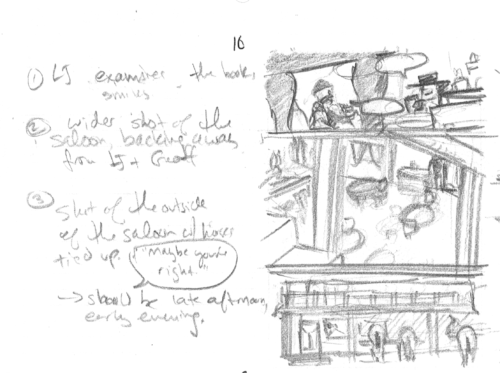 16
① LJ examines the book,
smiles
② wider shot of the
saloon, backing away
from LJ + Geoff
③ Shot of the outside
of the saloon w/ horses
tied up.
"Maybe you're
right."
→ should be late afternoon,
early evening.